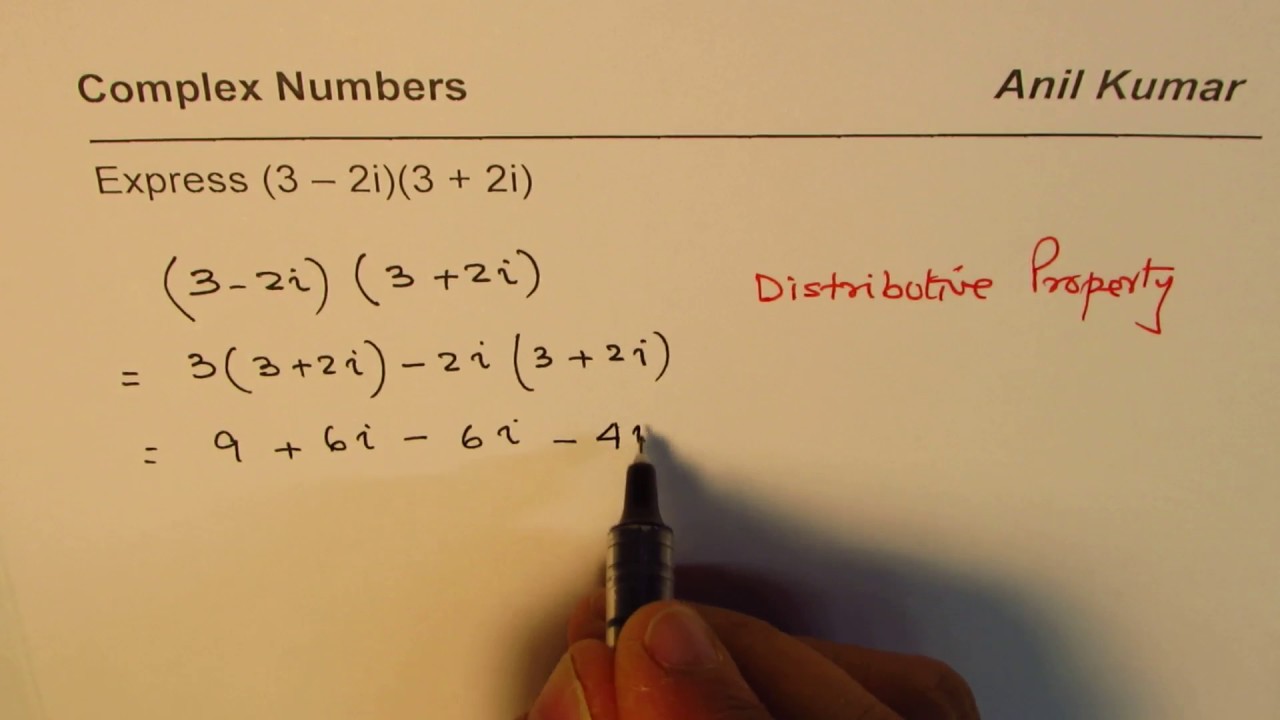 Complex Numbers Anil Kumar
Express (3 – 2i)(3 + 2i)
(3 - 2i) (3 + 2i) Distributive Property
= 3(3 + 2i) - 2i (3 + 2i)
= 9 + 6i - 6i - 4i